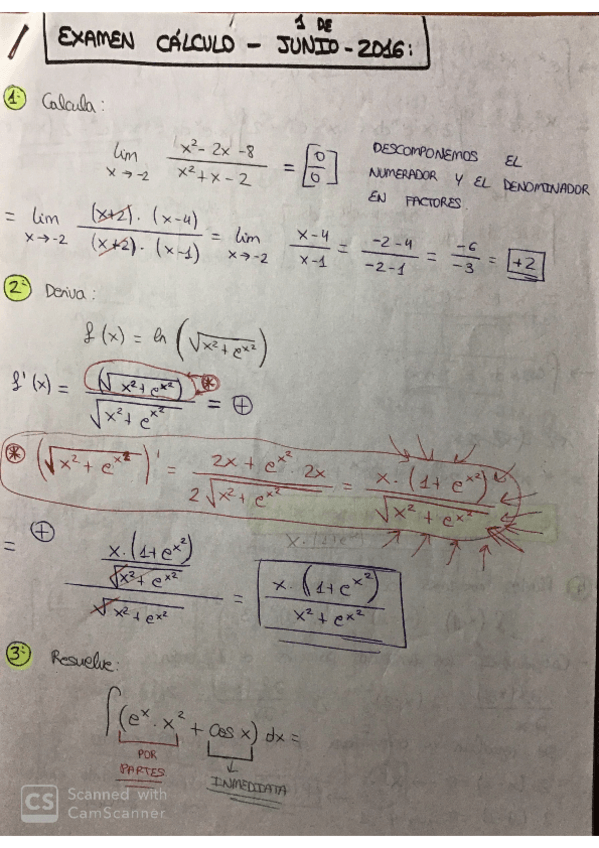 1 DE
EXAMEN CÁLCULO - JUNIO - 2016:
1º Calcula:
lim x→-2 (x² - 2x - 8)/(x² + x - 2) = [0/0]
DESCOMPONEMOS EL
NUMERADOR Y EL DENOMINADOR
EN FACTORES.
= lim x→-2 ((x+2)·(x-4))/((x+2)·(x-1)) = lim x→-2 (x-4)/(x-1) = (-2-4)/(-2-1) = -6/-3 = +2
2º Deriva:
f(x) = ln(√(x² + e^x²))
f'(x) = (√(x² + e^x²))'* / √(x² + e^x²) = ⊕
* (√(x² + e^x²))' = (2x + e^x² · 2x)/(2√(x² + e^x²)) = (x·(1+e^x²))/√(x² + e^x²)
= ⊕ ((x·(1+e^x²))/√(x² + e^x²))/√(x² + e^x²) = (x·(1+e^x²))/(x² + e^x²)
3º Resuelve:
∫(e^x · x² + cos x) dx =
POR
PARTES
INMEDIATA
CS Scanned with
CamScanner